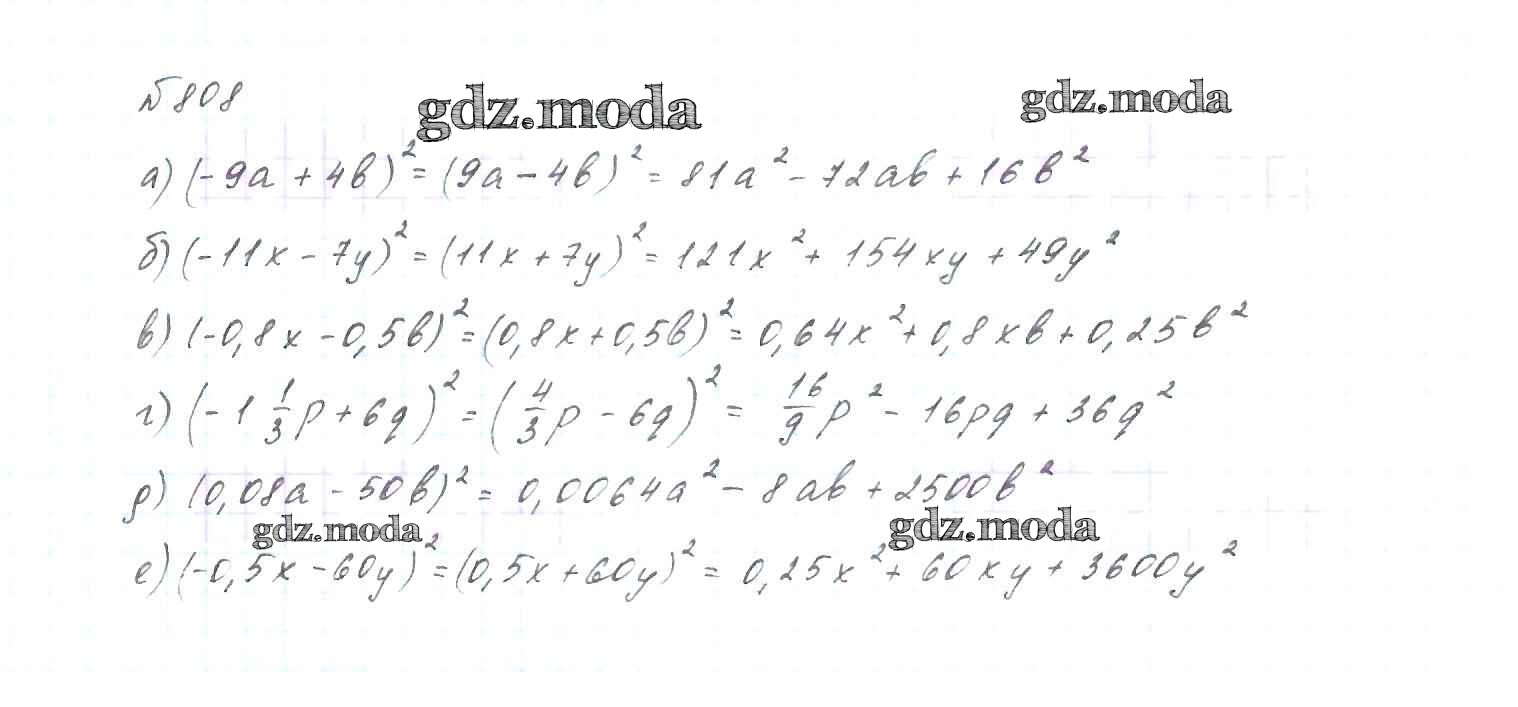 №808
gdz.moda gdz.moda
а) (-9a + 4b)² = (9a - 4b)² = 81a² - 72ab + 16b²
б) (-11x - 7y)² = (11x + 7y)² = 121x² + 154xy + 49y²
в) (-0,8x - 0,5b)² = (0,8x + 0,5b)² = 0,64x² + 0,8xb + 0,25b²
г) (-1 1/3 p + 6q)² = (4/3 p - 6q)² = 16/9 p² - 16pq + 36q²
д) (0,08a - 50b)² = 0,0064a² - 8ab + 2500b²
gdz.moda gdz.moda
е) (-0,5x - 60y)² = (0,5x + 60y)² = 0,25x² + 60xy + 3600y²